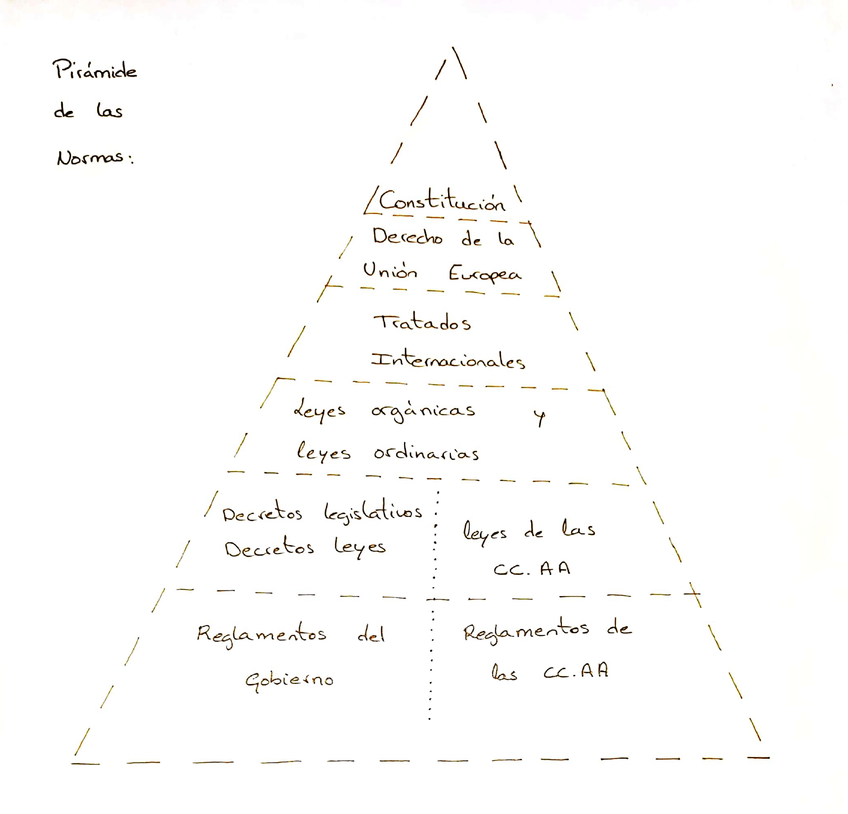 Pirámide
de las
Normas:
Constitución
Derecho de la
Unión Europea
Tratados
Internacionales
Leyes orgánicas y
leyes ordinarias
Decretos legislativos
Decretos leyes
leyes de las
CC. AA
Reglamentos del
Gobierno
Reglamentos de
las CC. AA